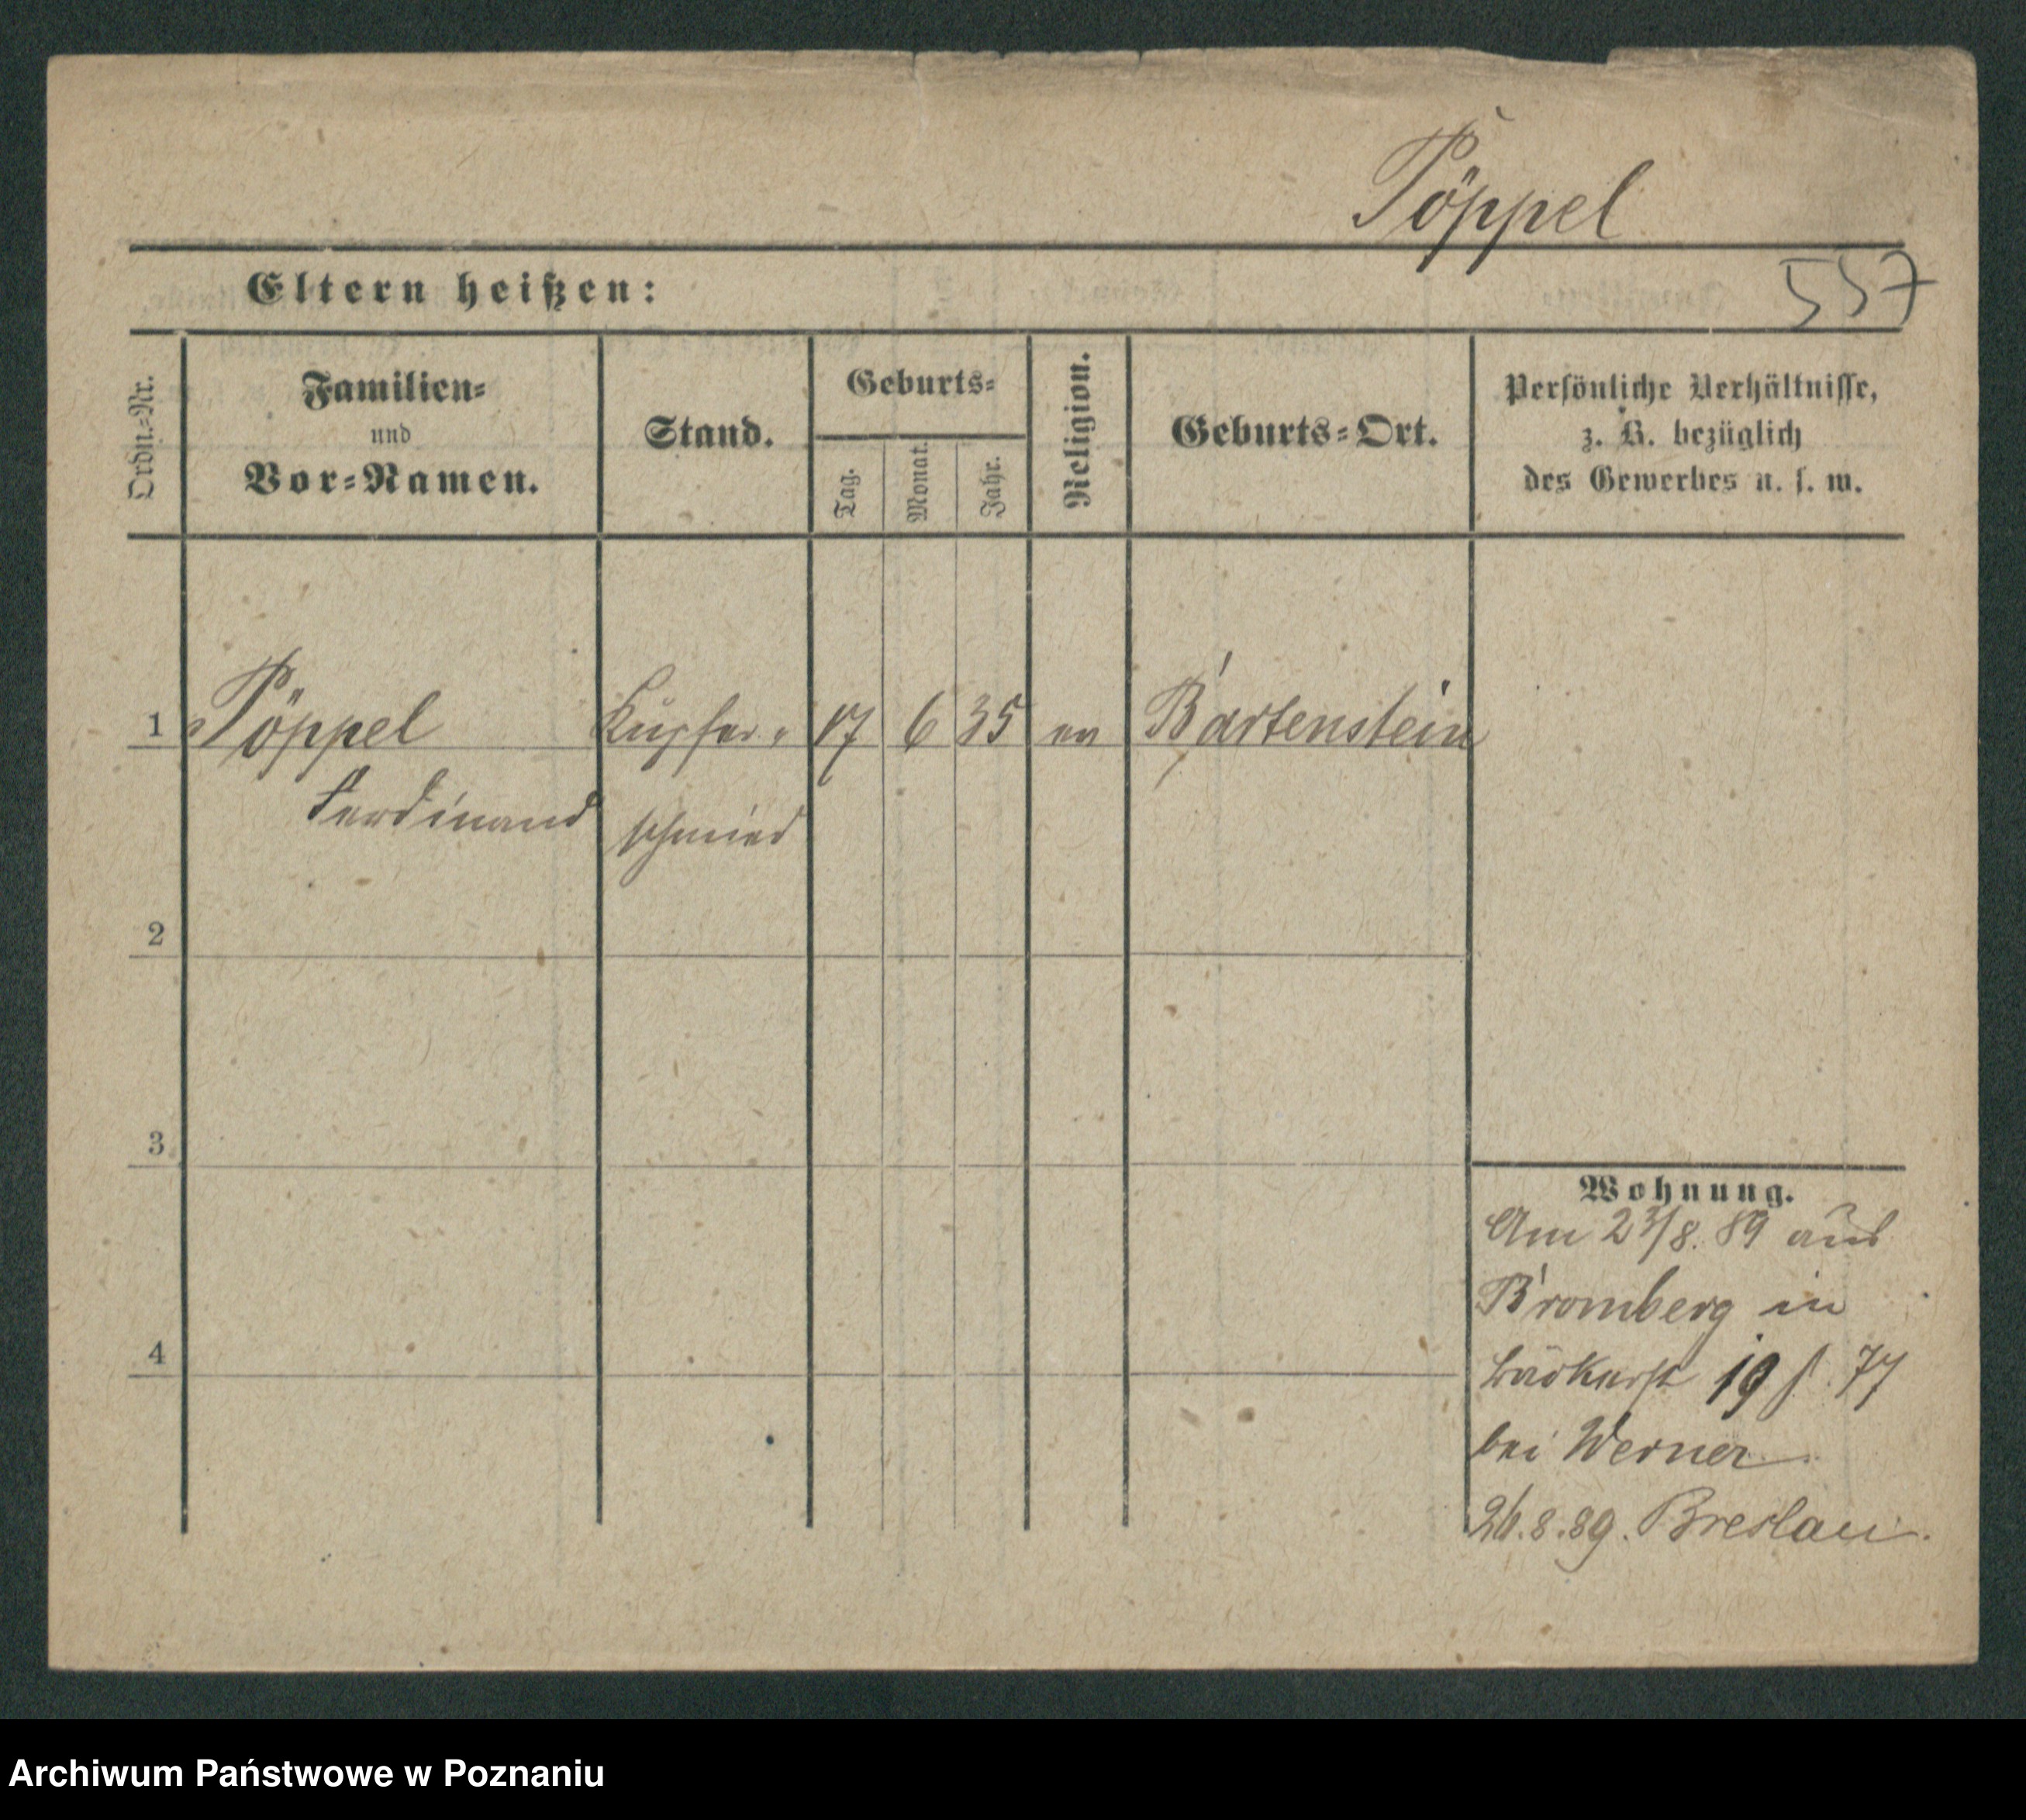 Pöppel
Eltern heißen:
557
Ordn.-Nr.
Familien-
und
Vor-Namen.
Stand.
Geburts-
Tag.
Monat.
Jahr.
Religion.
Geburts-Ort.
Persönliche Verhältnisse,
z. B. bezüglich
des Gewerbes u. s. w.
1 Pöppel Kupfer- 17 6 35 ev Bartenstein
Ferdinand schmied
2
3
4
Wohnung.
Am 23/8. 89 aus
Bromberg in
19 77
bei Werner
26.8.89. Breslau.
Archiwum Państwowe w Poznaniu